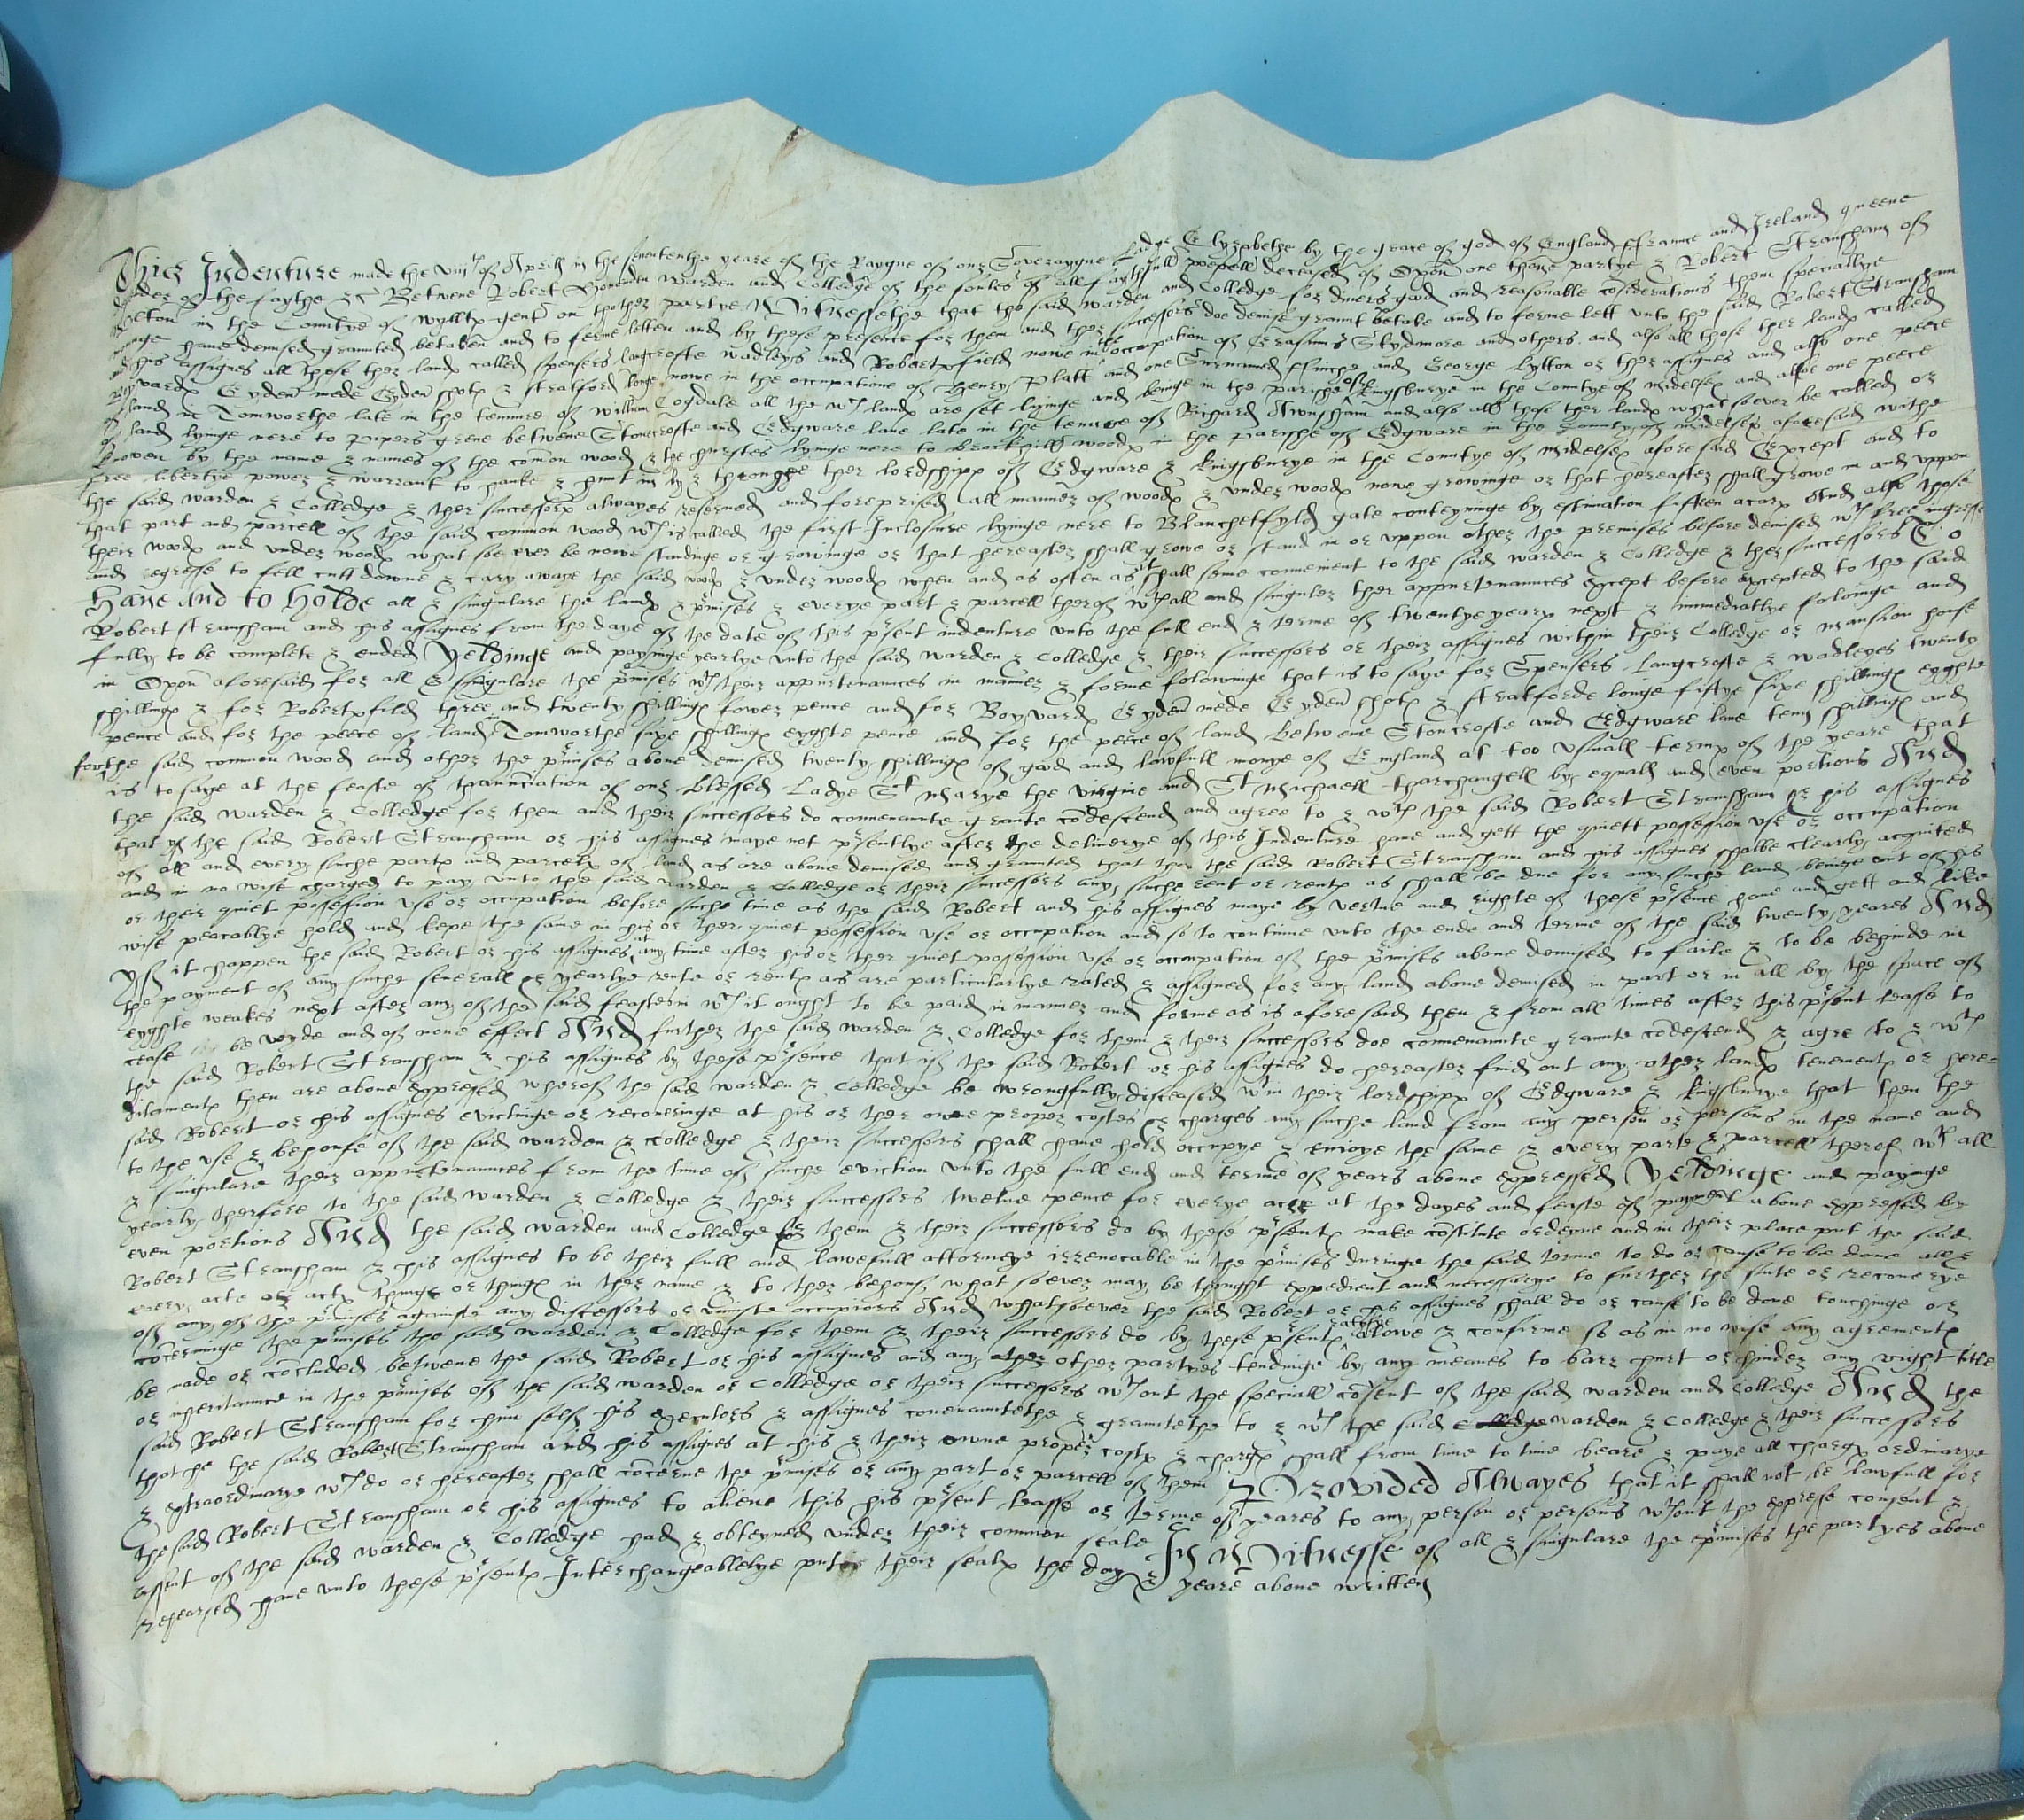 This Indenture made the viijth of Aprill in the sevententhe yeare of the Raygne of our Soveraygne Ladye Elyzabethe by the grace of god of England Fraunce and Ireland queene
defender of the faythe &c Betwene Robert Hovenden Warden and Colledge of the soules of all faythfull people deceased of Oxon one thone partye & Robert Stransham of
in the Countye of Wylltx gent on thother partye Witnessethe that the said warden and Colledge for divers good and reasonable cosiderations them speciallye
have demised graunted betaken and to ferme letten and by these presence for them and ther successors doe demise graunt betake and to ferme lett unto the said Robert Stransham
his assignes all those ther landx called Spensers Langcrofte wadleys and Robertxfield nowe in the occupation of Erasmus Skydmore and others and also all those ther landx called
Boyvardx Eyden mede Eyden shotx & stratford longe nowe in the occupatione of Henry Platt and one Surnamed Fflinche and George Lytton or ther assignes and also one peece
of land in Tomworthe late in the tenure of William Cogdale all the wch landx are set lyinge and beinge in the parishe of Kingsburye in the Countye of Midelsex and allso one peece
of land lyinge nere to pypers grene betwene Stoncrofte and Edgware lane late in the tenure of Richard Awnsham and also all those ther landx whatsoever be called or
knowen by the name & names of the comon wood & the hurstes lyinge nere to brockhill woodx in the parishe of Edgware in the County of midelsex aforesaid withe
free libertye power & warrant to hauke & hunt in by & throughe ther lordshippx of Edgware & kingsburye in the Countye of Midelsex aforesaid Except and to
the said warden & Colledge & ther successors alwayes reserved and foreprised all manner of woodx & under woodx nowe growinge or that hereafter shall growe in and uppon
that part and parcell of the said common wood wch is called the first Inclosure lyinge nere to Blanchetfyld gate conteyninge by estimation fiften acarx And also those
their woodx and under woodx what soe ever be nowe standinge or growinge or that hereafter shall growe or stand in or uppon other the premises before demised wth free ingresse
and egresse to fell cutt downe & cary awaye the said woodx & under woodx when and as often as it shall seme convenient to the said warden & Colledge & ther successors To
Have and to Holde all & singulare the landx & pmises & everye part & parcell therof wth all and singuler ther appurtenaunces except before excepted to the said
Robert Stransham and his assignes from the daye of the date of this psent indenture unto the full end & terme of twentye yearx next & immediatlye foloinge and
fully to be complete & ended Yeldinge and payinge yearlye unto the said warden & Colledge & their successors or their assignes within their Colledge or mansion house
in Oxon aforesaid for all & singulare the pmises wth their appurtenaunces in manner & forme folowinge that is to saye for Spensers Langcrofte & wadleyes twenty
shillingx & for Robertxfild three and twenty shillingx fower pence and for Boyvardx Eyden mede Eyden shotx & stratforde longe fiftye sixe shillingx eyghte
pence and for the peece of land in Tomworthe sixe shillingx eyghte pence and for the peece of land betwene Stoncrofte and Edgware lane tenn shillingx and
for the said common wood and other the pmises above demised twenty shillingx of good and lawfull monye of England at too usuall termx of the yeare that
is to saye at the feaste of thanunciation of our blessed Ladye St Marye the virgine and St Michaell tharchangell by equall and even portions And
the said warden & Colledge for them and their successors do covenaunte graunte codescend and agree to & wth the said Robert Stransham or his assignes
that yf the said Robert Stransham or his assignes maye not psentlye after the deliverye of this Indenture have and gett the quiett possession use or occupation
of all and every suche partx and parcelx of land as are above demised and graunted that then the said Robert Stransham and his assignes shalbe clearly acquited
and in no wise charged to pay unto the said warden & Colledge or their successors any suche rent or rentx as shall be due for any suche land beinge out of his
or their quiet possession use or occupation before suche time as the said Robert and his assignes maye by vertue and righte of these psence have and gett and like
wise peacablye hold and kepe the same in his or ther quiet possession use or occupation and so to continue unto the ende and terme of the said twenty yeares And
yff it happen the said Robert or his assignes at any time after his or ther quiet posession use or occupation of the pmises above demised to faile & to be behinde in
the payment of any suche severall or yearlye rente or rentx as are particularlye rated & assigned for any land above demised in part or in all by the space of
eyghte weakes next after any of the said feastes in wch it ought to be paid in manner and forme as is aforesaid then & from all times after this psent lease to
cease be voyde and of none effect And further the said warden & Colledge for them & their successors doe covenaunte graunte codescend & agre to & wth
the said Robert Stransham & his assignes by these psence that if the said Robert or his assignes do hereafter find out any other landx tenementx or here-
ditamentx then are above expressed wherof the said warden & Colledge be wrongfully disceased wthin their lordshippx of Edgware & kingsburye that then the
said Robert or his assignes evictinge or recoveringe at his or ther owne proper costes & charges any suche land from any person or persons in the name and
to the use & behoufe of the said warden & Colledge & their successors shall have hold occupye & enioye the same & every parte & parcell therof wth all
& singulare their appurtenaunces from the time of suche eviction unto the full end and terme of years above expressed Yeldinge and payinge
yearly therfore to the said warden & Colledge & their successors twelve pence for everye acre at the dayes and feaste of payment above expressed by
even portions And the said warden and Colledge for them & their successors do by these psentx make costitute ordeyne and in their place put the said
Robert Stransham & his assignes to be their full and lawefull attorneye irrevocable in the pmises duringe the said terme to do or cause to be done all &
every acte or actx thinge or thingx in ther name & to ther behouf what soever may be thought expedient and necessarye to further the sute or recoverye
of any of the pmises againste any disseissors or uniuste occupiors And whatsoever the said Robert or his assignes shall do or cause to be done touchinge or
concerninge the pmises the said warden & Colledge for them & their successors do by these psentx ratifie alowe & confirme so as in no wise any agrementx
be made or concluded betwene the said Robert or his assignes and any other other partyes tendinge by any meanes to barr hurt or hinder any right title
or inheritaunce in the pmises of the said warden or Colledge or their successors wthout the speciall cosent of the said warden and Colledge And the
said Robert Stransham for him self his executors & assignes covenauntethe & grauntethe to & wth the said Colledge warden & Colledge & their successors
that he the said Robert Stransham and his assignes at his & their owne proper costx & chargx shall from time to time beare & paye all chargx ordinarye
& extraordinarye wch do or hereafter shall concerne the pmises or any part or parcell of them Provided Alwayes that it shall not be lawfull for
the said Robert Stransham or his assignes to aliene this his psent lease or terme of yeares to any person or persons wthout the expresse consent &
assent of the said warden & Colledge had & obteyned under their common seale In Witnesse of all & singulare the pmises the partyes above
rehearsed have unto these psentx Interchangeablelye put their sealx the day & yeare above written